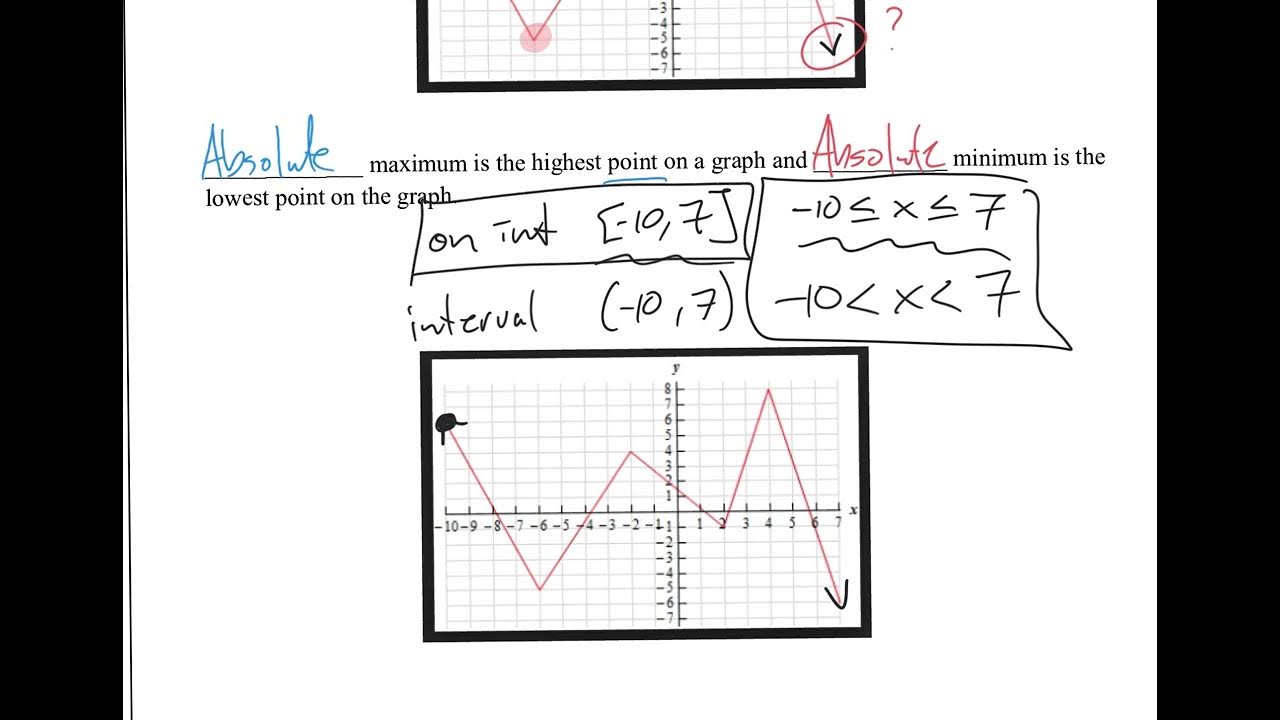 -3
-4
-5
-6
-7
?
Absolute maximum is the highest point on a graph and Absolute minimum is the
lowest point on the graph.
on int [-10, 7]
-10 ≤ x ≤ 7
interval (-10, 7)
-10 < x < 7
y
8
7
6
5
4
3
2
1
-10 -9 -8 -7 -6 -5 -4 -3 -2 -1 1 2 3 4 5 6 7 x
-1
-2
-3
-4
-5
-6
-7